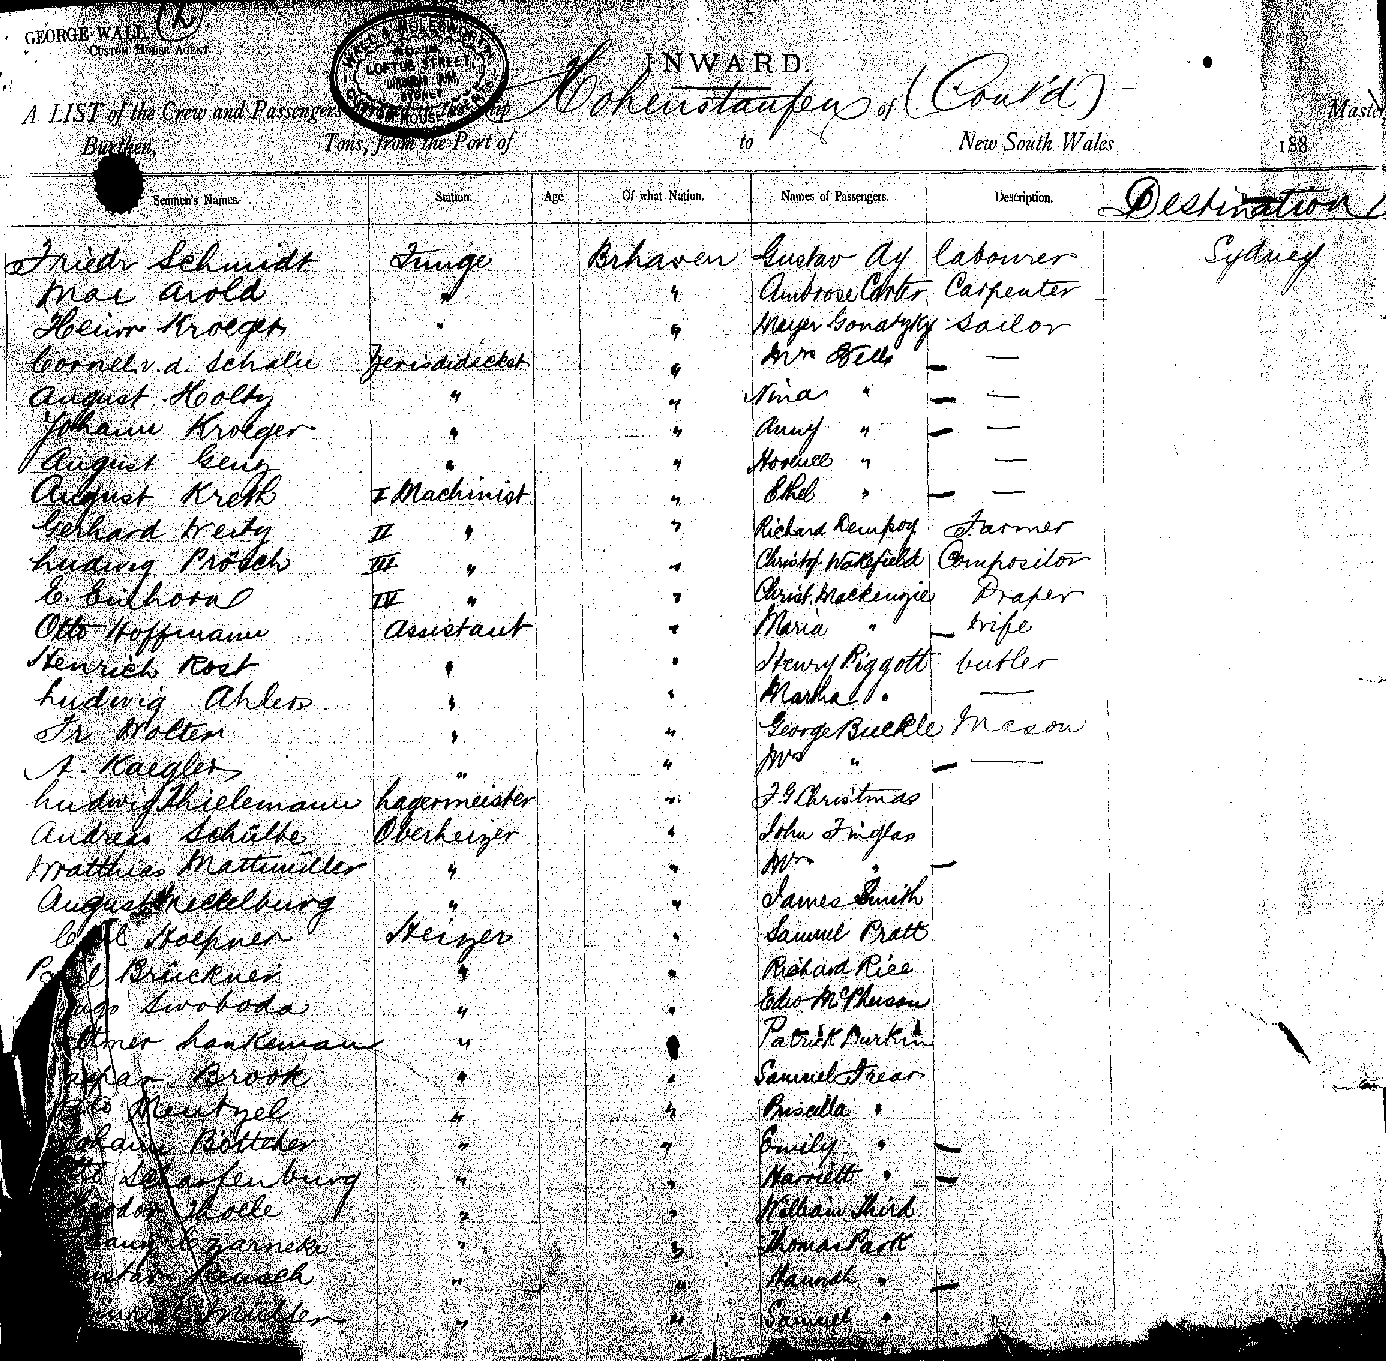 GEORGE WALL
CUSTOM HOUSE AGENT
LOFTUS STREET
INWARD.
A LIST of the Crew and Passengers Hohenstaufen of (Cont'd) Master,
Burthen, Tons, from the Port of to New South Wales 188
Seamen's Names. Station. Age Of what Nation. Names of Passengers. Description. Destination
Friedr Schmidt Junge Brhaven Gustav Ay labourer Sydney
Max Arold " " Ambrose Carter Carpenter
Heinr Kroeger " " Meyer Gonatzky Sailor
Cornel. v. d. Schalie " Mrs Wells — —
August Holty " " Nina " — —
Johann Kroeger " " Anny " — —
August Genz " " " —
August Kreth I Machinist " Ethel " — —
Gerhard Werty II " " Richard Dempsy Farmer
Ludwig Prösch III " " Christof Wakefield Compositor
E. Einhorn IV " " Christ. Mackenzie Draper
Otto Hoffmann Assistant " Maria " — Wife
Henrich Rost " " Henry Piggott butler
Ludwig Ahlers " " Martha " —
Fr Wolter " " George Buckle Mason
A. Kaegler " " Mrs " — —
Ludwig Thielemann Lagermeister " F G Christmas
Andreas Schülbe Oberheizer " John Finglas
Matthias Mattmüller " " Mrs " —
August Meckelburg " " James Smith
Carl Hoepner Heizer " Samuel Pratt
Brückner " " Richard Rice
Swoboda " " Edwo McPherson
Lankemann " " Patrick Durkin
Brook " " Samuel Frear
Mentzel " " Priscilla "
Johann Böttcher " " Emily " —
Scharfenburg " " Harriett " —
Thoele " " William Third
Czarneki " " Thomas Park
Reusch " " Hannah " —
" " Samuel "